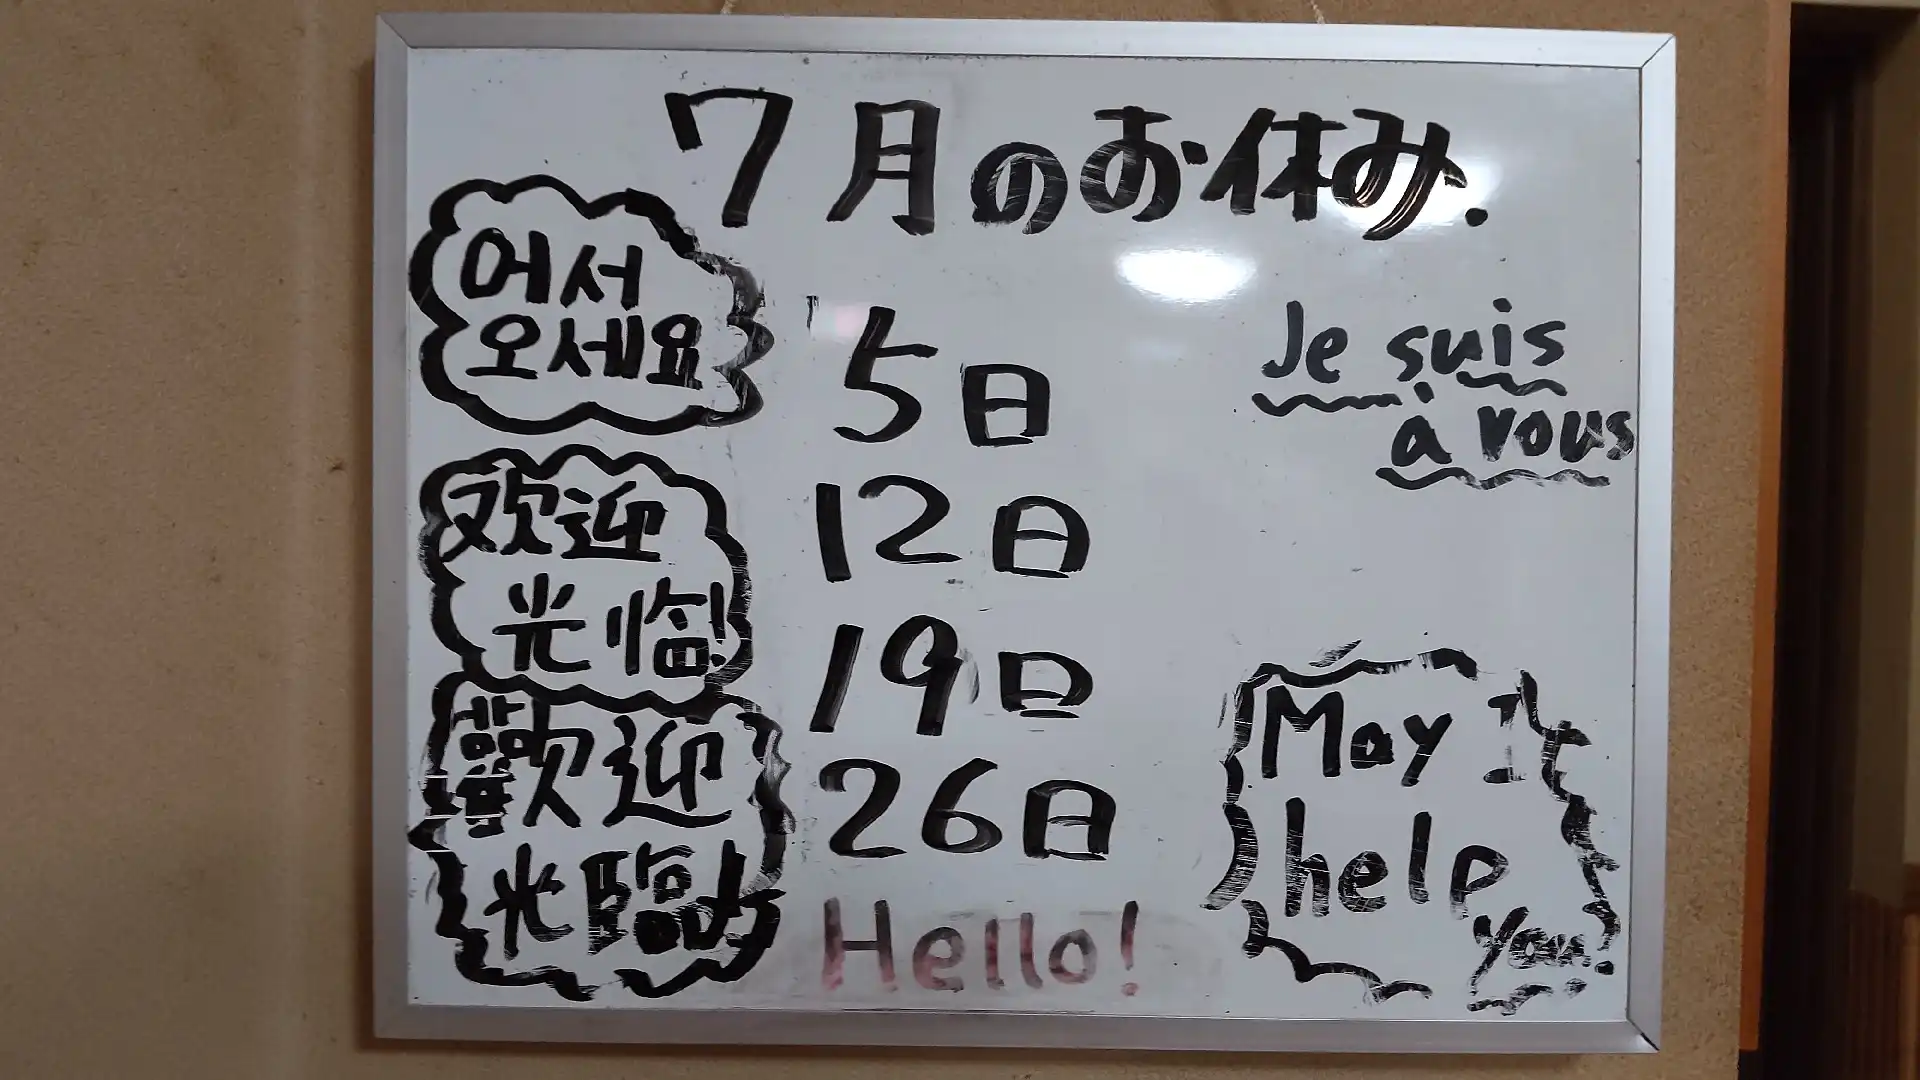 7月のお休み.
어서
오세요
欢迎
光临!
歡迎
光臨!
5日
12日
19日
26日
Hello!
Je suis
à vous
May I
help
you!